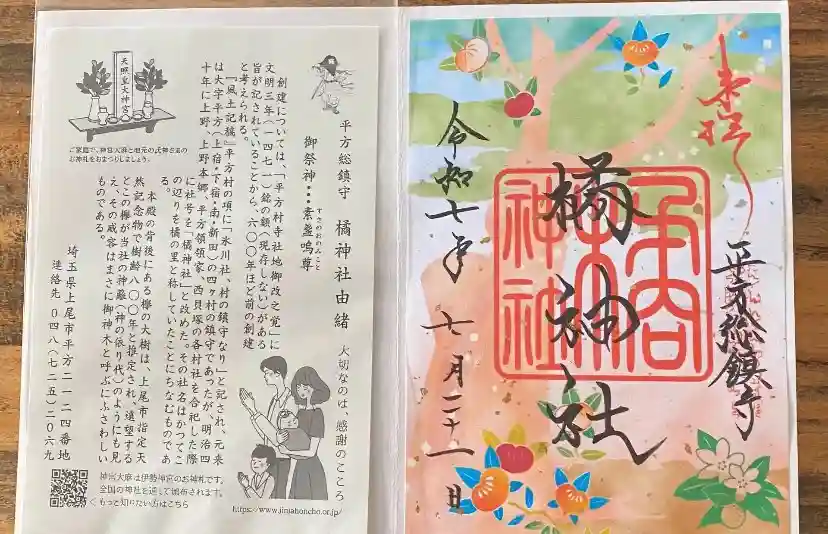 奉拝
平方総鎮守
橘神社
平方
橘
神社
令和七年 七月二十一日
平方総鎮守 橘神社由緒
すさのおのみこと
御祭神・・・素盞嗚尊
創建については、「平方村寺社地御改之覚」に
文明三年（一四七一）銘の額（現存しない）がある
旨が記されていることから、六〇〇年ほど前の創建
と考えられる。
『風土記稿』平方村の項に「氷川社、村の鎮守なり」と記され、元来
は大字平方（上宿・下宿・南・新田）の四ヶ村の鎮守であったが、明治四
十年に上野、上野本郷、平方領領家、西貝塚の各村社を合祀した際
に社号を「橘神社」と改めた。その社名はかつてこ
の辺りを橘の里と称していたことにちなむものであ
る。
本殿の背後にある欅の大樹は、上尾市指定天
然記念物で樹齢八〇〇年と推定され、遠望する
とこの欅が当社の神籬（神の依り代）のようにも見
え、その威容はまさに御神木と呼ぶにふさわしい
ものである。
埼玉県上尾市平方二一二四番地
連絡先 〇四八（七二五）二〇六九
天照皇大神宮
ご家庭で、神宮大麻と地元の氏神さまの
お神札をおまつりしましょう。
大切なのは、感謝のこころ
神宮大麻は伊勢神宮のお神札です。
全国の神社を通して頒布されます。
くもっと知りたい方はこちら
https://www.jinjahoncho.or.jp/